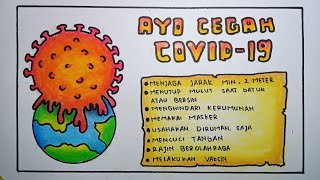 AYO CEGAH
COVID-19
• MENJAGA JARAK MIN. 2 METER
• MENUTUP MULUT SAAT BATUK
ATAU BERSIN
• MENGHINDARI KERUMUNAN
• MEMAKAI MASKER
• USAHAKAN DIRUMAH SAJA
• MENCUCI TANGAN
• RAJIN BEROLAHRAGA
• MELAKUKAN VAKSIN